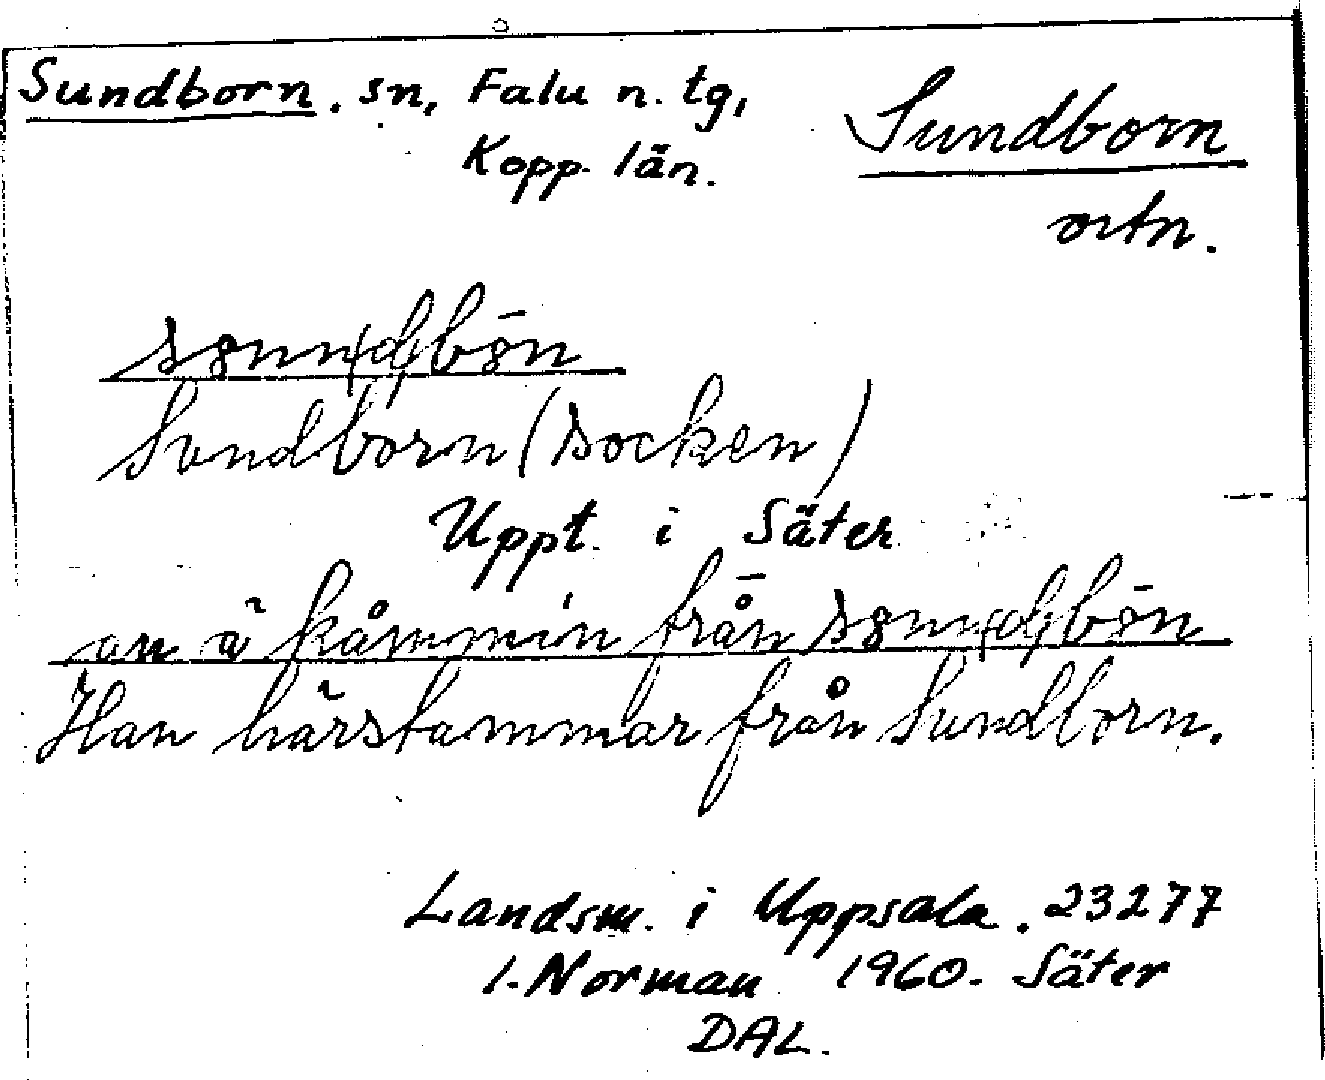 Sundborn. sn, Falu n. tg,
Kopp. län.
Sundborn
ortn.
Sundborn (socken)
Uppt. i Säter
an kåmmin från
Han härstammar från Sundborn.
Landsm. i Uppsala. 23277
I. Norman 1960. Säter
DAL.